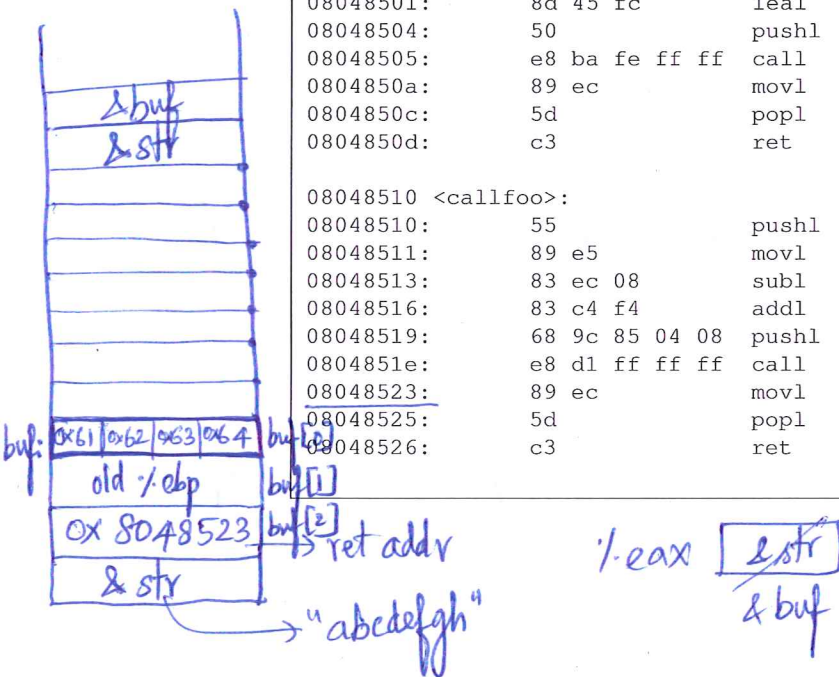 08048501: 8d 45 fc leal
08048504: 50 pushl
08048505: e8 ba fe ff ff call
0804850a: 89 ec movl
0804850c: 5d popl
0804850d: c3 ret
08048510 <callfoo>:
08048510: 55 pushl
08048511: 89 e5 movl
08048513: 83 ec 08 subl
08048516: 83 c4 f4 addl
08048519: 68 9c 85 04 08 pushl
0804851e: e8 d1 ff ff ff call
08048523: 89 ec movl
08048525: 5d popl
08048526: c3 ret
&buf
&str
buf: 0x61 0x62 0x63 0x64 buf[0]
old %ebp buf[1]
0x 8048523 buf[2]
ret addr
& str
"abcdefgh"
%eax &str
& buf